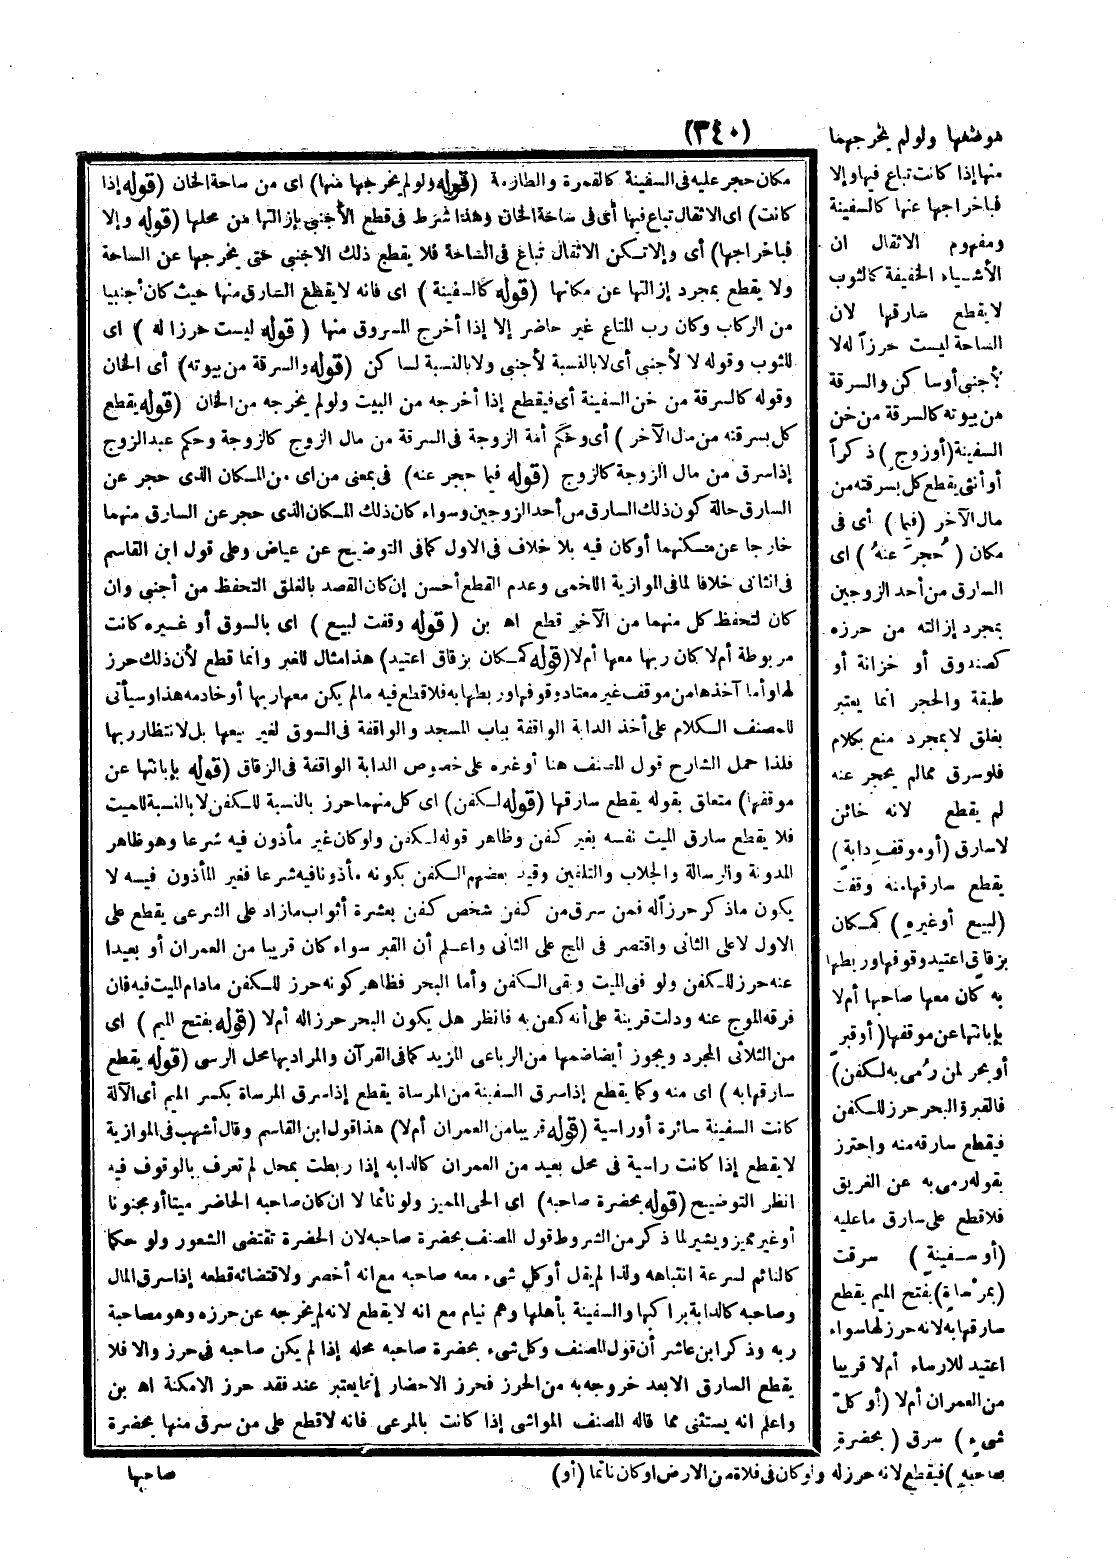 (٣٤٠)
موضعها ولو لم يخرجهما
منها إذا كانت تباع فيها وإلا
فباخراجها عنها كالسفينة
ومفهوم الاثقال ان
الأشياء الخفيفة كالثوب
لا يقطع سارقها لان
الساحة ليست حرزاً له لا
لأجنبي أو ساكن والسرقة
من بيوته كالسرقة من خن
السفينة (أو زوج) ذكراً
أو أنثى يقطع كل بسرقته من
مال الآخر (فيما) أى فى
مكان (حُجِرَ عنهُ) اى
السارق من أحد الزوجين
بمجرد إزالته من حرزه
كصندوق أو خزانة أو
طبقة والحجر انما يعتبر
بغلق لا بمجرد منع بكلام
فلو سرق ممالم يحجر عنه
لم يقطع لانه خائن
لا سارق (أو موقفِ دابةٍ)
يقطع سارقها منه وقفت
(لبيع أو غيرهِ) كمكان
بزقاق اعتيد وقوفها وربطها
به كان معها صاحبها أم لا
بإبانتها عن موقفها (أو قبرٍ
أو بحر لمن رُمى به لكفن)
فالقبر والبحر حرز للكفن
فيقطع سارقه منه واحترز
بقوله رمى به عن الغريق
فلا قطع على سارق ما عليه
(أو سفينةٍ) سرقت
(بمرساةٍ) بفتح الميم يقطع
سارقها به لانه حرز لها سواء
اعتيد للارساء أم لا قريبا
من العمران أم لا (أو كلّ
شىءٍ) سرق (بحضرةِ
صاحبهِ) فيقطع لانه حرز له ولو كان فى فلاة من الارض او كان نائما (أو)
مكان حجر عليه فى السفينة كالقمرة والطازمة (قوله ولو لم يخرجها منها) اى من ساحة الخان (قوله إذا
كانت) اى الاثقال تباع فيها أى فى ساحة الخان وهذا شرط فى قطع الأجنبى بإزالتها من محلها (قوله وإلا
فباخراجها) أى وإلا تكن الاثقال تباع فى الساحة فلا يقطع ذلك الاجنبى حتى يخرجها عن الساحة
ولا يقطع بمجرد إزالتها عن مكانها (قوله كالسفينة) اى فانه لا يقطع السارق منها حيث كان أجنبيا
من الركاب وكان رب المتاع غير حاضر إلا إذا أخرج المسروق منها (قوله ليست حرزا له) اى
للثوب وقوله لا لأجنبى أى لا بالنسبة لأجنبى ولا بالنسبة لساكن (قوله والسرقة من بيوته) أى الخان
وقوله كالسرقة من خن السفينة أى فيقطع إذا أخرجه من البيت ولو لم يخرجه من الخان (قوله يقطع
كل بسرقته من مال الآخر) أى وحكم أمة الزوجة فى السرقة من مال الزوج كالزوجة وحكم عبد الزوج
إذا سرق من مال الزوجة كالزوج (قوله فيما حجر عنه) فى بمعنى من اى من المكان الذى حجر عن
السارق حالة كون ذلك السارق من أحد الزوجين وسواء كان ذلك المكان الذى حجر عن السارق منهما
خارجا عن مسكنهما أو كان فيه بلا خلاف فى الاول كما فى التوضيح عن عياض وعلى قول ابن القاسم
فى الثانى خلافا لما فى الموازية اللخمى وعدم القطع أحسن إن كان القصد بالغلق التحفظ من أجنبى وان
كان لتحفظ كل منهما من الآخر قطع اه بن (قوله وقفت لبيع) اى بالسوق أو غيره كانت
مربوطة أم لا كان ربها معها أم لا (قوله كمكان بزقاق اعتيد) هذا مثال للغير وانما قطع لأن ذلك حرز
لها وأما آخذها من موقف غير معتاد وقوفها وربطها به فلا قطع فيه ما لم يكن معها ربها أو خادمه هذا وسيأتى
للمصنف الكلام على أخذ الدابة الواقفة بباب المسجد والواقفة فى السوق لغير بيعها بل لانتظار ربها
فلذا حمل الشارح قول المصنف هنا أو غيره على خصوص الدابة الواقفة فى الزقاق (قوله بإبانتها عن
موقفها) متعلق بقوله يقطع سارقها (قوله لكفن) اى كل منهما حرز بالنسبة للكفن لا بالنسبة للميت
فلا يقطع سارق الميت نفسه بغير كفن وظاهر قوله لكفن ولو كان غير مأذون فيه شرعا وهو ظاهر
المدونة والرسالة والجلاب والتلقين وقيد بعضهم الكفن بكونه مأذونا فيه شرعا فغير المأذون فيه لا
يكون ما ذكر حرزاً له فمن سرق من كفن شخص كفن بعشرة أثواب ما زاد على الشرعى يقطع على
الاول لا على الثانى واقتصر فى المج على الثانى واعلم أن القبر سواء كان قريبا من العمران أو بعيدا
عنه حرز للكفن ولو فنى الميت وبقى الكفن وأما البحر فظاهر كونه حرز للكفن مادام الميت فيه فان
فرقه الموج عنه ودلت قرينة على أنه كفن به فانظر هل يكون البحر حرزا له أم لا (قوله بفتح الميم) اى
من الثلاثى المجرد ويجوز أيضا ضمها من الرباعى المزيد كما فى القرآن والمراد بها محل الرسى (قوله يقطع
سارقها به) اى منه وكما يقطع إذا سرق السفينة من المرساة يقطع إذا سرق المرساة بكسر الميم أى الآلة
كانت السفينة سائرة أو راسية (قوله قريبا من العمران أم لا) هذا قول ابن القاسم وقال أشهب فى الموازية
لا يقطع إذا كانت راسية فى محل بعيد من العمران كالدابه إذا ربطت بمحل لم تعرف بالوقوف فيه
انظر التوضيح (قوله بحضرة صاحبه) اى الحى المميز ولو نائما لا ان كان صاحبه الحاضر ميتا أو مجنونا
أو غير مميز ويشير لما ذكر من الشروط قول المصنف بحضرة صاحبه لان الحضرة تقتضى الشعور ولو حكما
كالنائم لسرعة انتباهه ولذا لم يقل أو كل شىء معه صاحبه مع انه أخصر ولاقتضائه قطعه إذا سرق المال
وصاحبه كالدابة براكبها والسفينة بأهلها وهم نيام مع انه لا يقطع لانه لم يخرجه عن حرزه وهو مصاحبة
ربه وذكر ابن عاشر أن قول المصنف وكل شىء بحضرة صاحبه محله إذا لم يكن صاحبه فى حرز والا فلا
يقطع السارق الا بعد خروجه به من الحرز فحرز الاحضار إنما يعتبر عند فقد حرز الامكنة اه بن
واعلم انه يستثنى مما قاله المصنف المواشى إذا كانت بالمرعى فانه لا قطع على من سرق منها بحضرة
صاحبها